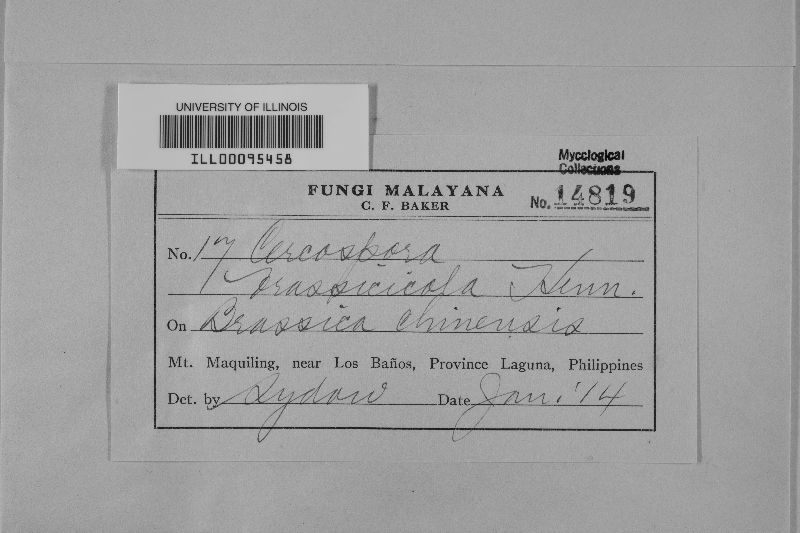 UNIVERSITY OF ILLINOIS
ILL00095458
Mycological
Collections
No. 14819
FUNGI MALAYANA
C. F. BAKER
No. 17 Cercospora
brassicicola Henn.
On Brassica chinensis
Mt. Maquiling, near Los Baños, Province Laguna, Philippines
Det. by Sydow Date Jan. '14